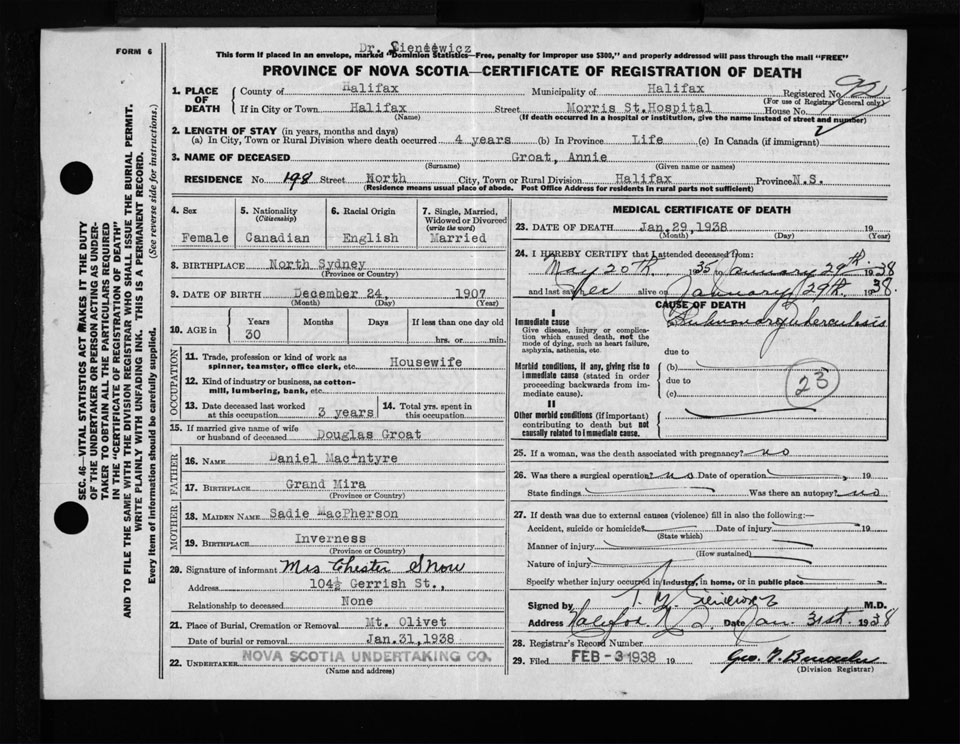 FORM 6
Dr. Sieniewicz
This form if placed in an envelope, marked "Dominion Statistics—Free, penalty for improper use $300," and properly addressed will pass through the mail "FREE"
PROVINCE OF NOVA SCOTIA—CERTIFICATE OF REGISTRATION OF DEATH
1. PLACE OF DEATH
County of Halifax Municipality of Halifax Registered No. 92
(For use of Registrar General only)
If in City or Town Halifax Street Morris St.Hospital House No.
(Name) (If death occurred in a hospital or institution, give the name instead of street and number)
2. LENGTH OF STAY (in years, months and days)
(a) In City, Town or Rural Division where death occurred 4 years (b) In Province Life (c) In Canada (if immigrant)
3. NAME OF DECEASED Groat, Annie
(Surname) (Given name or names)
RESIDENCE No. 198 Street North City, Town or Rural Division Halifax Province N.S.
(Residence means usual place of abode. Post Office Address for residents in rural parts not sufficient)
SEC. 46—VITAL STATISTICS ACT MAKES IT THE DUTY
OF THE UNDERTAKER OR PERSON ACTING AS UNDER-
TAKER TO OBTAIN ALL THE PARTICULARS REQUIRED
IN THE "CERTIFICATE OF REGISTRATION OF DEATH"
AND TO FILE THE SAME WITH THE DIVISION REGISTRAR WHO SHALL ISSUE THE BURIAL PERMIT.
WRITE PLAINLY WITH UNFADING INK. THIS IS A PERMANENT RECORD.
Every item of information should be carefully supplied. (See reverse side for instructions.)
4. Sex Female
5. Nationality (Citizenship) Canadian
6. Racial Origin English
7. Single, Married, Widowed or Divorced (write the word) Married
8. BIRTHPLACE North Sydney
(Province or Country)
9. DATE OF BIRTH December 24, 1907
(Month) (Day) (Year)
10. AGE in Years 30 Months Days If less than one day old hrs. or min.
OCCUPATION
11. Trade, profession or kind of work as spinner, teamster, office clerk, etc. Housewife
12. Kind of industry or business, as cotton-mill, lumbering, bank, etc.
13. Date deceased last worked at this occupation 3 years
14. Total yrs. spent in this occupation
15. If married give name of wife or husband of deceased Douglas Groat
FATHER
16. NAME Daniel MacIntyre
17. BIRTHPLACE Grand Mira
(Province or Country)
MOTHER
18. MAIDEN NAME Sadie MacPherson
19. BIRTHPLACE Inverness
(Province or Country)
20. Signature of informant Mrs Chester Snow
Address 104½ Gerrish St.,
Relationship to deceased None
21. Place of Burial, Cremation or Removal Mt. Olivet
Date of burial or removal Jan.31,1938
22. UNDERTAKER NOVA SCOTIA UNDERTAKING CO.
(Name and address)
MEDICAL CERTIFICATE OF DEATH
23. DATE OF DEATH Jan.29,1938 19
(Month) (Day) (Year)
24. I HEREBY CERTIFY that I attended deceased from:
May 20th 1935 January 29th 1938
and last saw her alive on January 29th. 1938.
CAUSE OF DEATH
I
Immediate cause
Give disease, injury or complication which caused death, not the mode of dying, such as heart failure, asphyxia, asthenia, etc.
Pulmonary Tuberculosis
due to
Morbid conditions, if any, giving rise to immediate cause (stated in order proceeding backwards from immediate cause).
(b)
due to
(c)
23
II
Other morbid conditions (if important) contributing to death but not causally related to immediate cause.
25. If a woman, was the death associated with pregnancy? no
26. Was there a surgical operation? no Date of operation 19
State findings Was there an autopsy? no
27. If death was due to external causes (violence) fill in also the following:—
Accident, suicide or homicide? Date of injury 19
(State which)
Manner of injury
(How sustained)
Nature of injury
Specify whether injury occurred in industry, in home, or in public place
Signed by T. M. Sieniewicz M.D.
Address Halifax N.S. Date Jan. 31st. 1938
28. Registrar's Record Number
29. Filed FEB -3 1938 19
(Division Registrar)